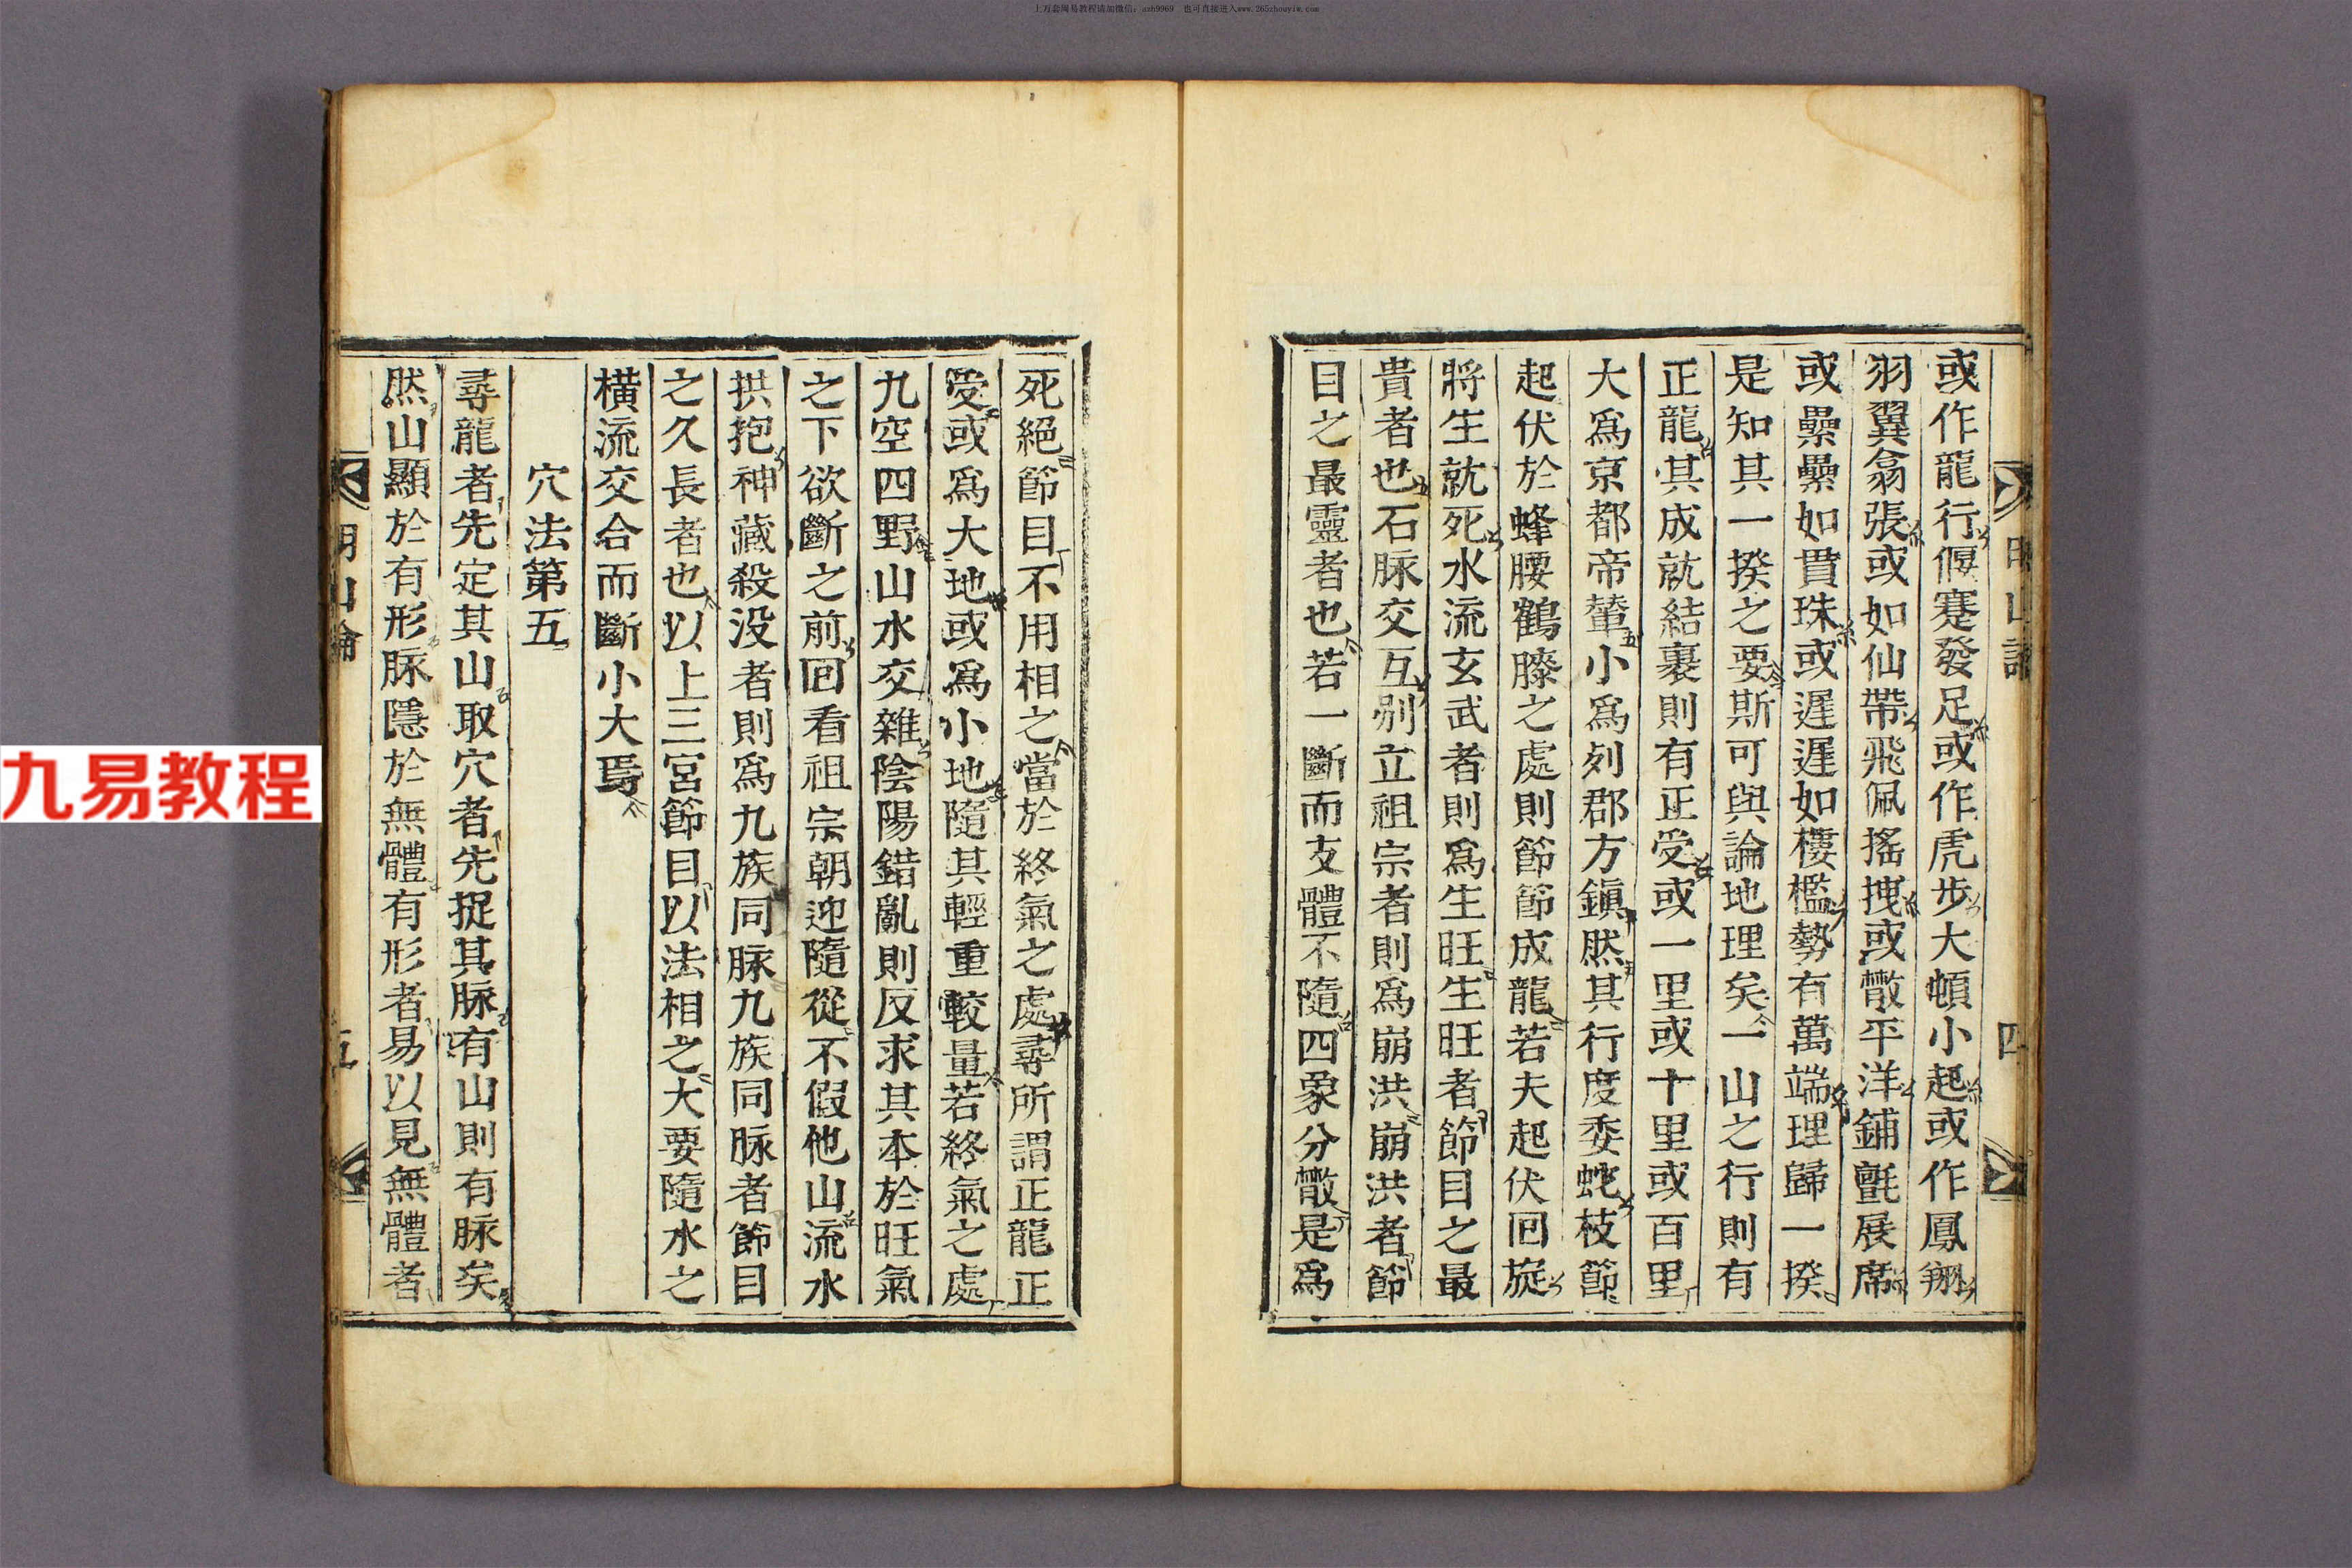 上万套周易教程请加微信：azh9969　也可直接进入www.265zhouyiw.com
九易教程
四
或作龍行偃蹇發足或作虎步大頓小起或作鳳翔
羽翼翕張或如仙帶飛佩搖拽或撒平洋鋪氊展席
或纍纍如貫珠或遲遲如樓檻勢有萬端理歸一揆
是知其一揆之要斯可與論地理矣一山之行則有
正龍其成就結裹則有正受或一里或十里或百里
大爲京都帝輦小爲列郡方鎭然其行度委蛇枝節
起伏於蜂腰鶴膝之處則節節成龍若夫起伏回旋
將生就死水流玄武者則爲生旺生旺者節目之最
貴者也石脉交互別立祖宗者則爲崩洪崩洪者節
目之最靈者也若一斷而支體不隨四象分撒是爲
死絕節目不用相之當於終氣之處尋所謂正龍正
受或爲大地或爲小地隨其輕重較量若終氣之處
九空四野山水交雜陰陽錯亂則反求其本於旺氣
之下欲斷之前回看祖宗朝迎隨從不假他山流水
拱抱神藏殺没者則爲九族同脉九族同脉者節目
之久長者也以上三宮節目以法相之大要隨水之
橫流交合而斷小大焉
穴法第五
尋龍者先定其山取穴者先捉其脉有山則有脉矣
然山顯於有形脉隱於無體有形者易以見無體者
明山論
五